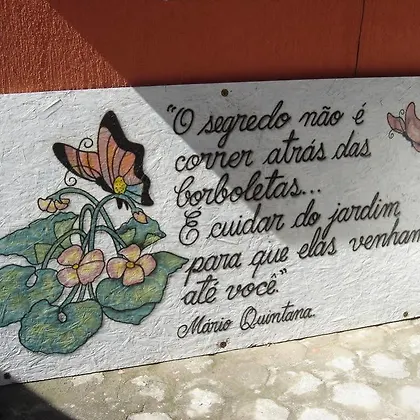 "O segredo não é
correr atrás das
borboletas...
É cuidar do jardim
para que elas venham
até você."
Mário Quintana.